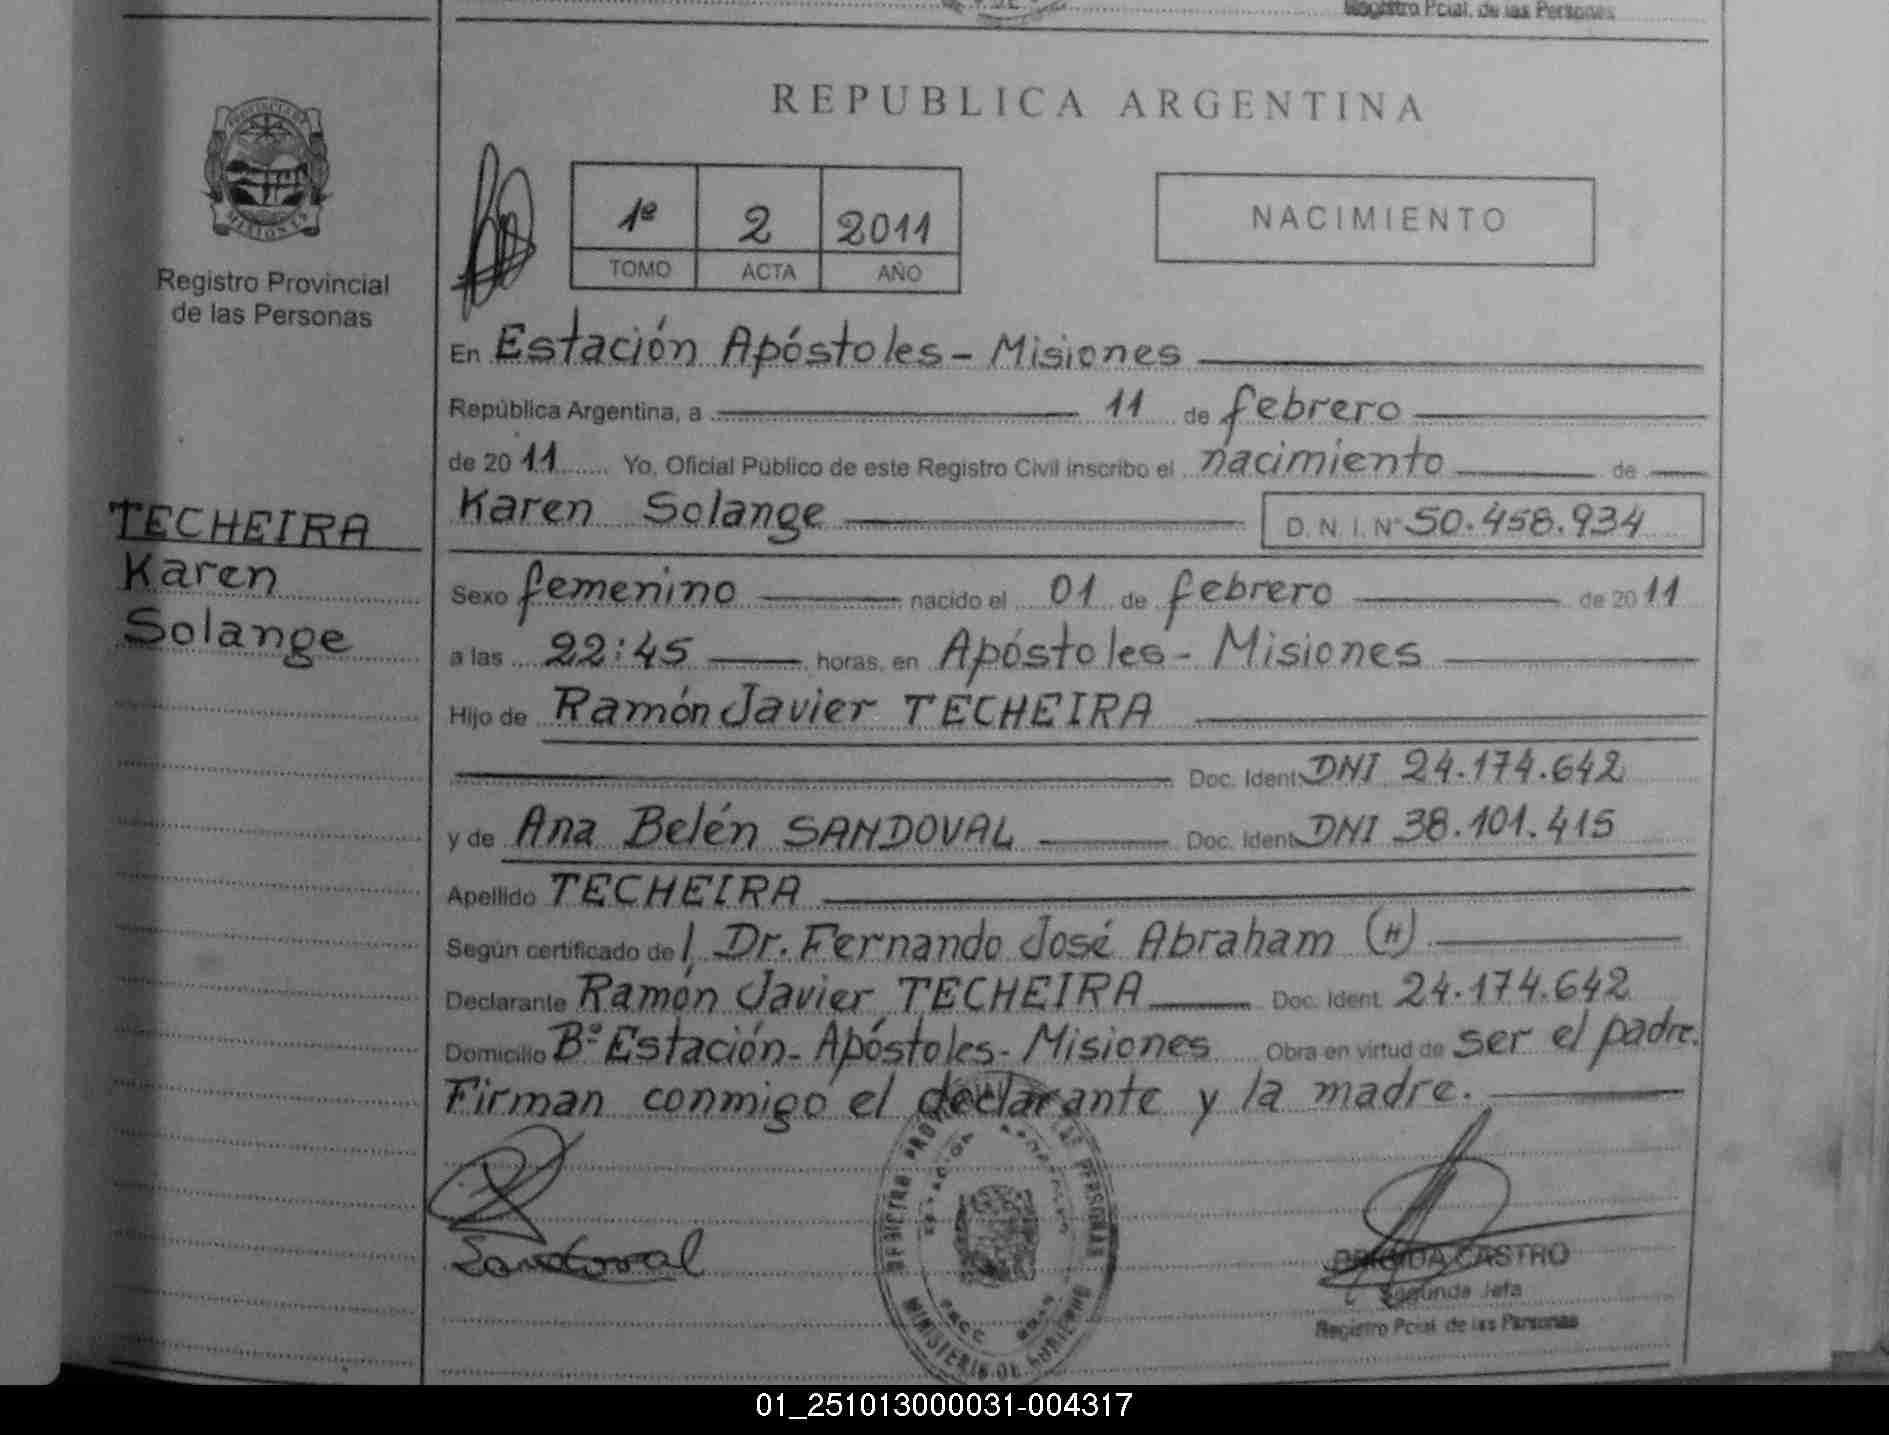 Registro Pcial. de las Personas
PROVINCIA DE
MISIONES
Registro Provincial
de las Personas
TECHEIRA
Karen
Solange
REPUBLICA ARGENTINA
1º 2 2011
TOMO ACTA AÑO
NACIMIENTO
En Estación Apóstoles - Misiones
República Argentina, a 11 de febrero
de 2011 Yo, Oficial Público de este Registro Civil inscribo el nacimiento de
Karen Solange D. N. I. Nº 50.458.934
Sexo femenino nacido el 01 de febrero de 2011
a las 22:45 horas, en Apóstoles - Misiones
Hijo de Ramón Javier TECHEIRA
Doc. Ident. DNI 24.174.642
y de Ana Belén SANDOVAL Doc. Ident. DNI 38.101.415
Apellido TECHEIRA
Según certificado de Dr. Fernando José Abraham (H)
Declarante Ramón Javier TECHEIRA Doc. Ident. 24.174.642
Domicilio Bº Estación - Apóstoles - Misiones Obra en virtud de ser el padre.
Firman conmigo el declarante y la madre.
Sandoval
MINISTERIO DE GOBIERNO
CASTRO
Segunda Jefa
Registro Pcial. de las Personas
01_251013000031-004317